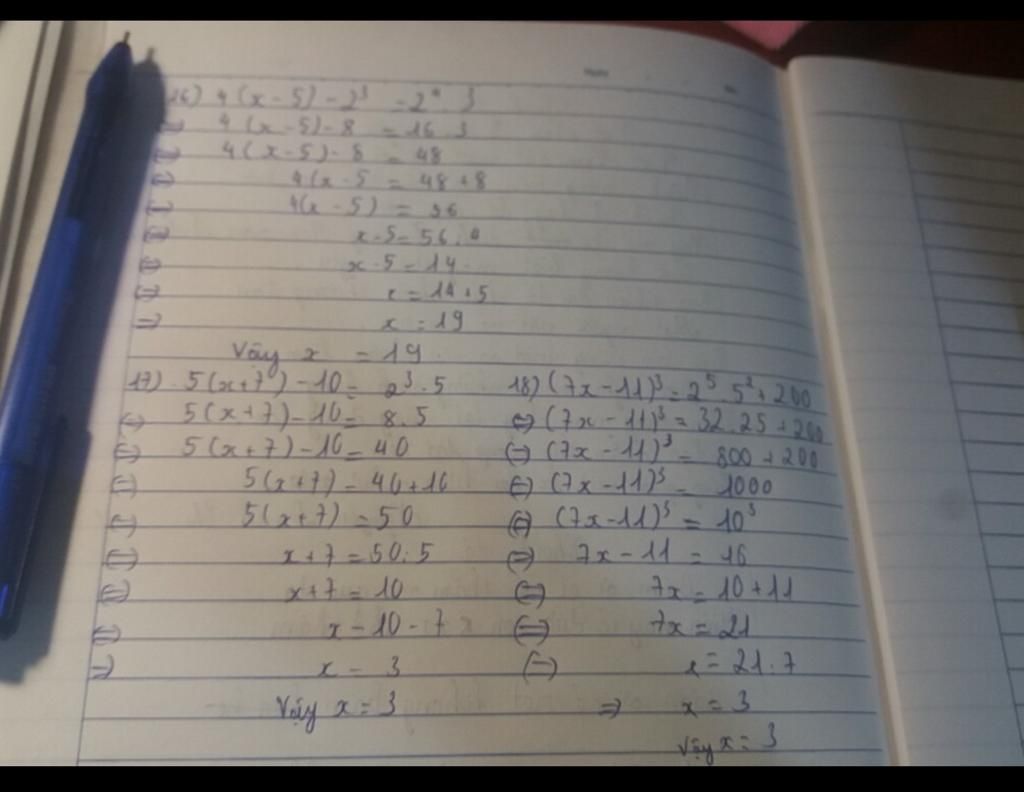 16) 4(x-5)-2³ = 2⁴.3
⇔ 4(x-5)-8 = 16.3
⇔ 4(x-5)-8 = 48
⇔ 4(x-5 = 48+8
⇔ 4(x-5) = 56
⇔ x-5=56:4
⇔ x-5=14
⇔ x=14+5
⇒ x=19
Vậy x = 19
17) 5(x+7)-10= 2³.5
⇔ 5(x+7)-10= 8.5
⇔ 5(x+7)-10=40
⇔ 5(x+7)=40+10
⇔ 5(x+7)=50
⇔ x+7=50:5
⇔ x+7=10
⇔ x=10-7
⇒ x= 3
Vậy x=3
18) (7x-11)³=2⁵.5²+200
⇔ (7x-11)³=32.25+200
⇔ (7x-11)³= 800+200
⇔ (7x-11)³= 1000
⇔ (7x-11)³=10³
⇔ 7x-11=10
⇔ 7x=10+11
⇔ 7x=21
⇔ x=21:7
⇒ x=3
Vậy x=3